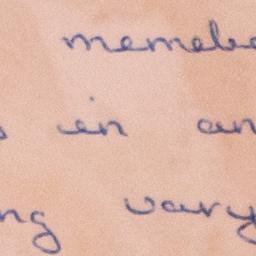 memebe
s in an
ng vary